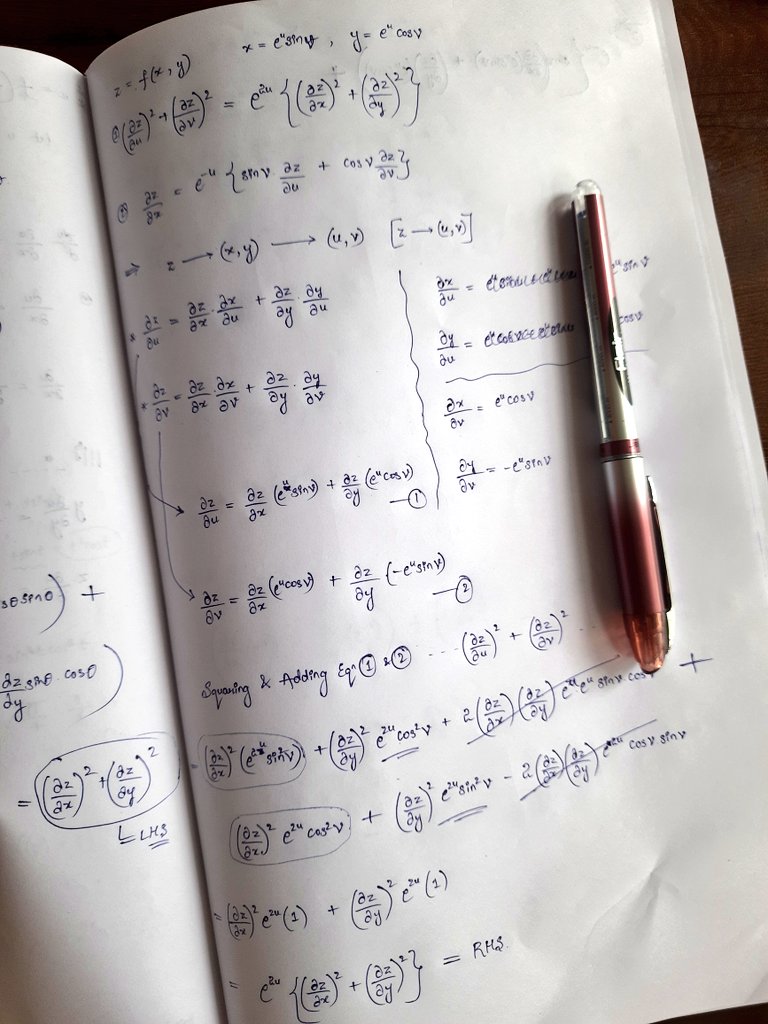 sθ sinθ) +
∂z/∂y sinθ · cosθ)
= (∂z/∂x)² + (∂z/∂y)²
LHS
z = f(x, y) x = eᵘ sinv , y = eᵘ cosv
① (∂z/∂u)² + (∂z/∂v)² = e²ᵘ {(∂z/∂x)² + (∂z/∂y)²}
② ∂z/∂x = e⁻ᵘ {sinv ∂z/∂u + cosv ∂z/∂v}
⇒ z → (x, y) → (u, v) [z → (u, v)]
* ∂z/∂u = ∂z/∂x · ∂x/∂u + ∂z/∂y · ∂y/∂u
* ∂z/∂v = ∂z/∂x · ∂x/∂v + ∂z/∂y · ∂y/∂v
∂x/∂u = eᵘ sinv
∂y/∂u = cosv
∂x/∂v = eᵘ cosv
∂y/∂v = -eᵘ sinv
∂z/∂u = ∂z/∂x (eᵘ sinv) + ∂z/∂y (eᵘ cosv) — ①
∂z/∂v = ∂z/∂x (eᵘ cosv) + ∂z/∂y (-eᵘ sinv) — ②
Squaring & Adding Eqⁿ ① & ② ... (∂z/∂u)² + (∂z/∂v)² ...
= (∂z/∂x)² (e²ᵘ sin²v) + (∂z/∂y)² e²ᵘ cos²v + 2(∂z/∂x)(∂z/∂y) eᵘ eᵘ sinv cosv +
(∂z/∂x)² e²ᵘ cos²v + (∂z/∂y)² e²ᵘ sin²v - 2(∂z/∂x)(∂z/∂y) e²ᵘ cosv sinv
= (∂z/∂x)² e²ᵘ (1) + (∂z/∂y)² e²ᵘ (1)
= e²ᵘ {(∂z/∂x)² + (∂z/∂y)²} = RHS.